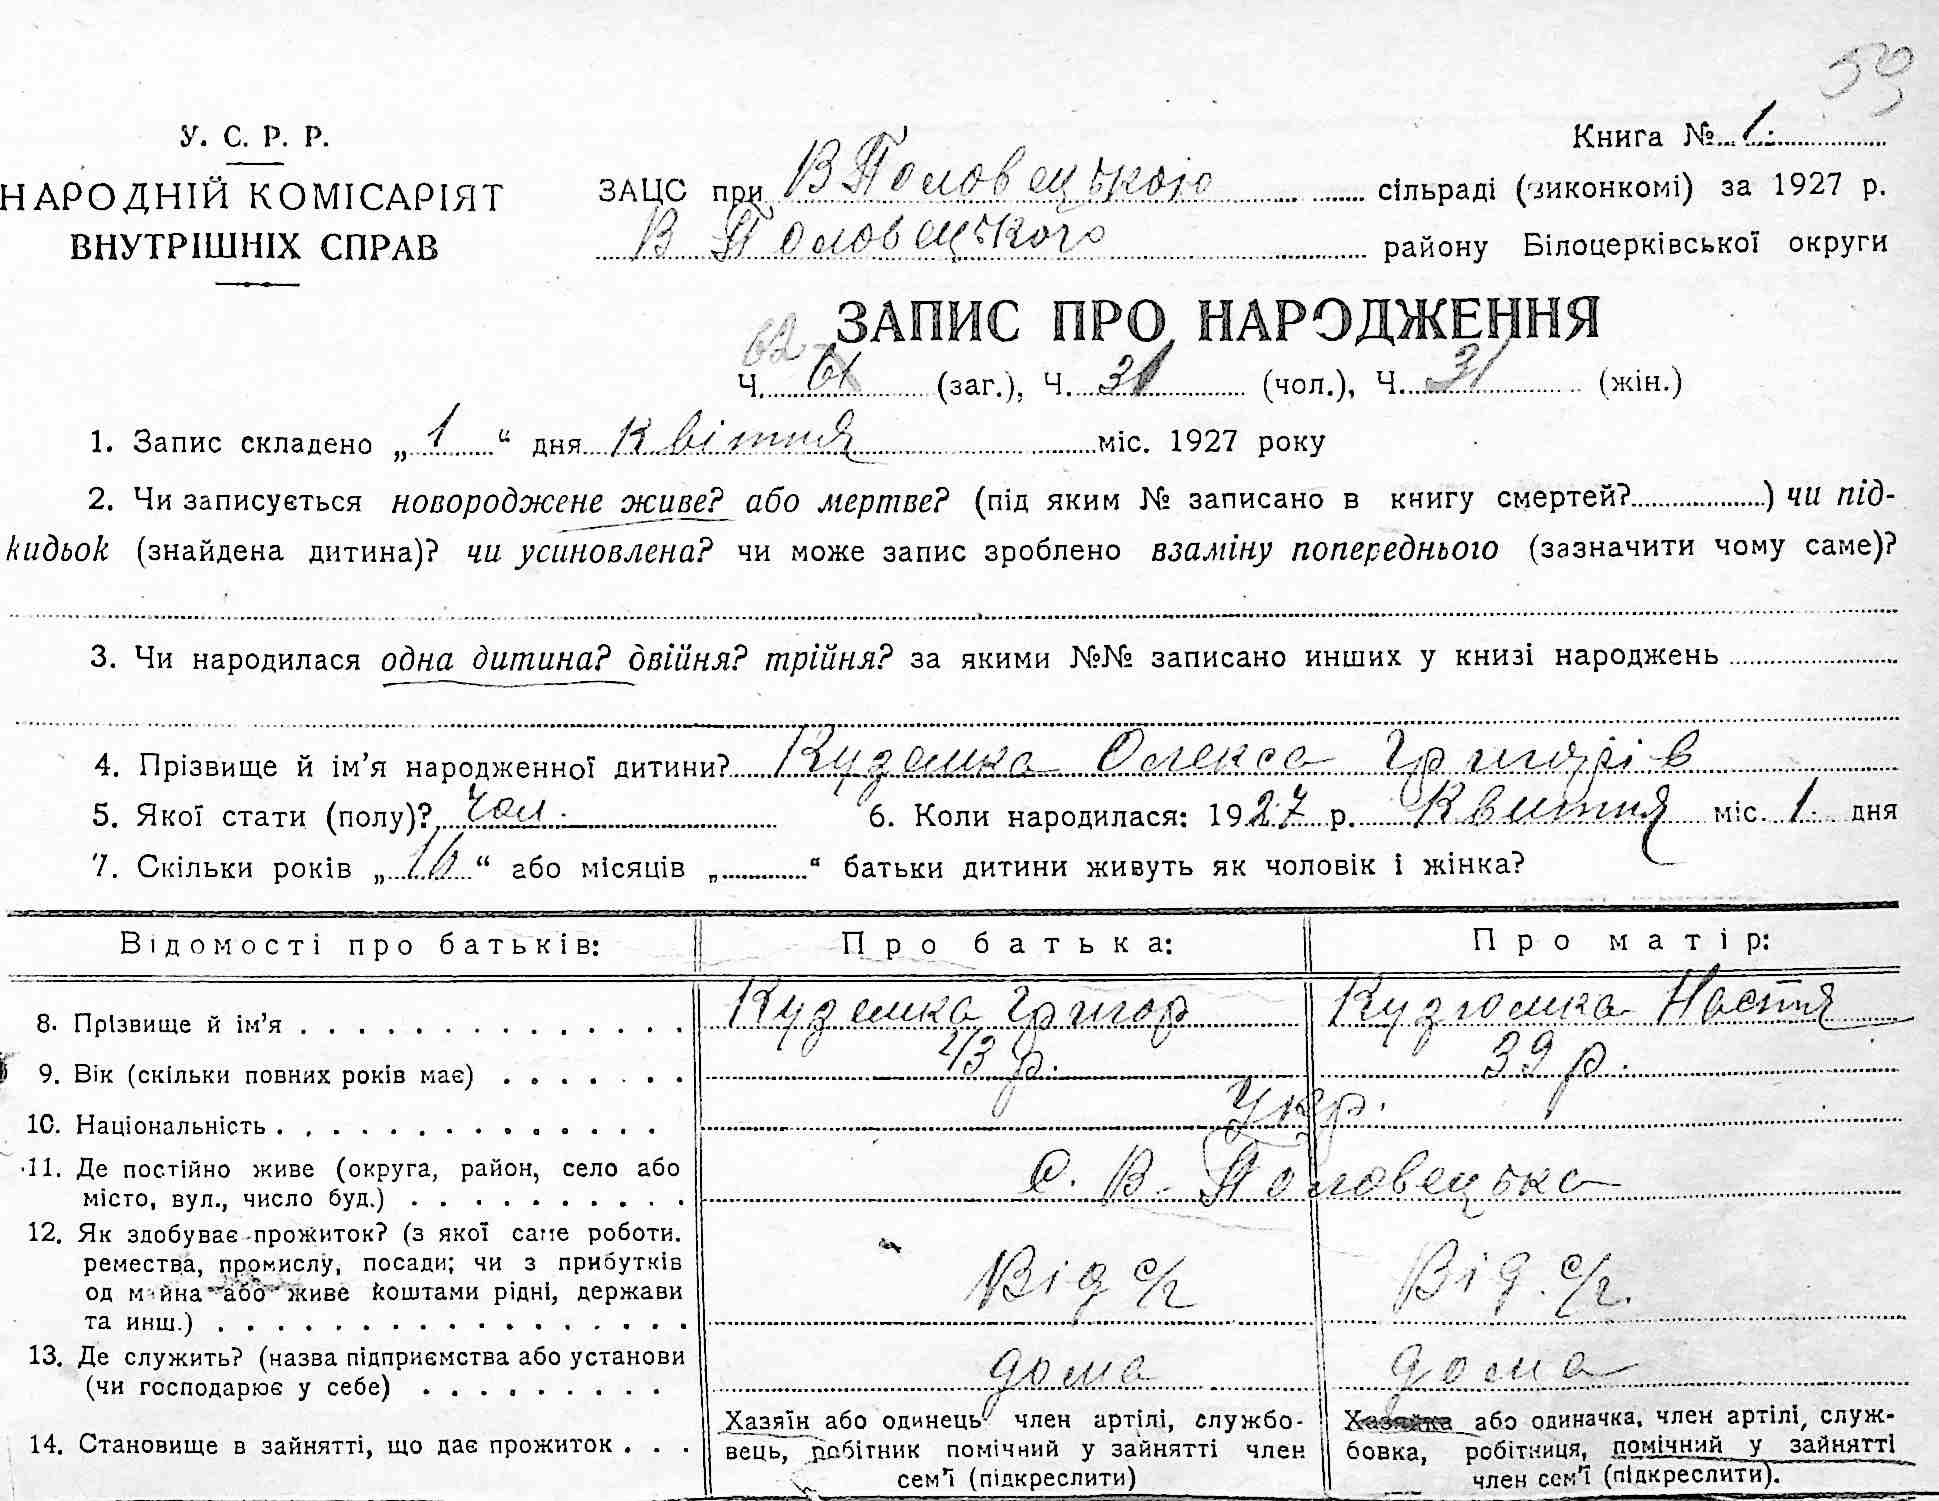 59
У. С. Р. Р.
НАРОДНІЙ КОМІСАРІЯТ
ВНУТРІШНІХ СПРАВ
Книга № 1.
ЗАЦС при В Половецькою сільраді (виконкомі) за 1927 р.
В Половецького району Білоцерківської округи
ЗАПИС ПРО НАРОДЖЕННЯ
62
Ч. 61 (заг.), Ч. 31 (чол.), Ч. 31 (жін.)
1. Запис складено „ 1 “ дня Квітня міс. 1927 року
2. Чи записується новороджене живе? або мертве? (під яким № записано в книгу смертей? ) чи під-
кидьок (знайдена дитина)? чи усиновлена? чи може запис зроблено взаміну попереднього (зазначити чому саме)?
3. Чи народилася одна дитина? двійня? трійня? за якими №№ записано инших у книзі народжень
4. Прізвище й ім’я народженної дитини? Куделка Олекса Григорів
5. Якої стати (полу)? Чол. 6. Коли народилася: 1927 р. Квитня міс. 1. дня
7. Скільки років „ 16 “ або місяців „ “ батьки дитини живуть як чоловік і жінка?
Відомості про батьків: Про батька: Про матір:
8. Прізвище й ім’я Куделка Григор Кудюлка Настя
9. Вік (скільки повних років має) 43 р. 39 р.
10. Національність Укр.
11. Де постійно живе (округа, район, село або
місто, вул., число буд.) С. В-Половецька
12. Як здобуває прожиток? (з якої саме роботи.
ремества, промислу, посади; чи з прибутків
од майна або живе коштами рідні, держави
та инш.) Від с/г Від. с/г.
13. Де служить? (назва підприємства або установи
(чи господарює у себе) дома дома
14. Становище в зайнятті, що дає прожиток
Хазяїн або одинець член артілі, службо-
вець, робітник помічний у зайнятті член
сем’ї (підкреслити)
Хазяйка або одиначка, член артілі, служ-
бовка, робітниця, помічний у зайнятті
член сем’ї (підкреслити).